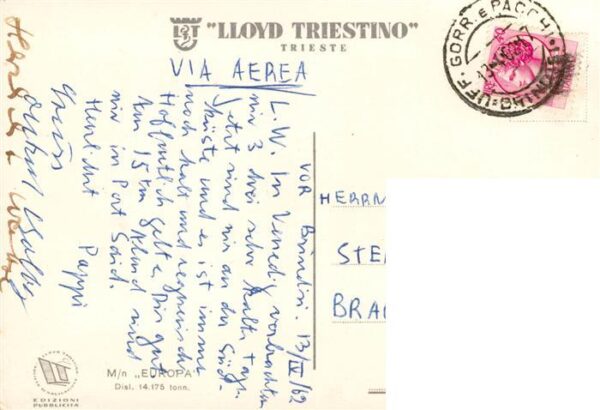 "LLOYD TRIESTINO"
TRIESTE
VIA AEREA
UFF. CORR. E PACCHI
BRINDISI
VOR Brindisi. 13/IV/62
L. W. In Venedig verbrachten
wir 3 drei sehr kalte Tage.
Jetzt sind wir an der Süd-
küste und es ist immer
noch kalt und regnerisch
Hoffentlich geht es Dir gut
Am 15ten Abend sind
wir in Port Said.
Herzlichst Pappi
HERRN
STE
BRA
M/n „EUROPA"
Disl. 14.175 tonn.
EDIZIONI
PUBBLICITÀ